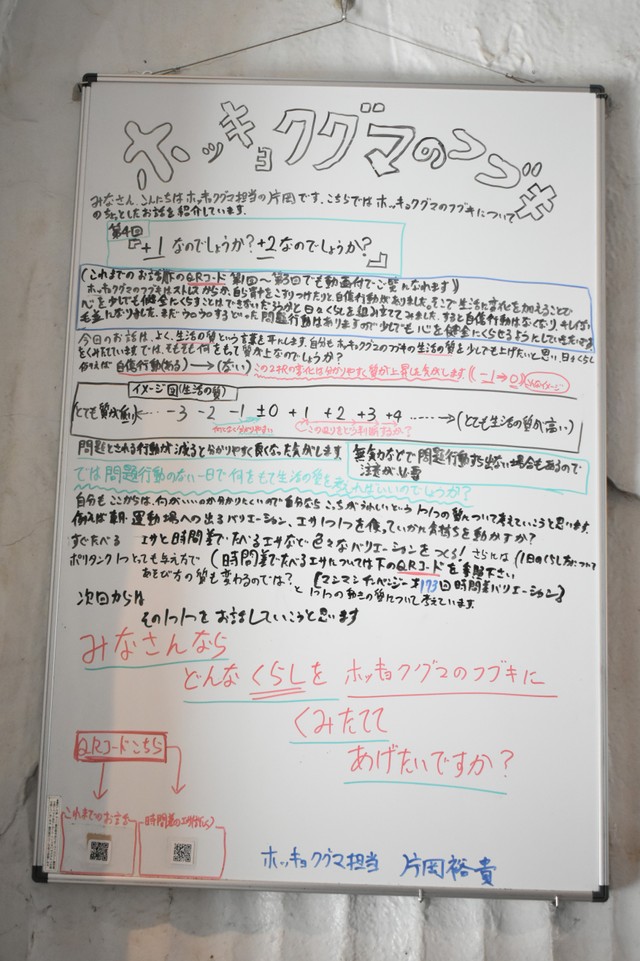 ホッキョクグマのフブキ
みなさん、こんにちはホッキョクグマ担当の片岡です。こちらではホッキョクグマのフブキについて
のちょっとしたお話を紹介しています。
第4回
『+1なのでしょうか?+2なのでしょうか?』
(これまでのお話は下のQRコード 第1回〜第3回でも動画付でご覧になれます)
ホッキョクグマのフブキはストレスからか、自ら背中をこすりつけたりと自傷行動がありました。そこで生活に変化を加えることで
心を少しでも健全にくらすことはできないだろうかと日々くらしを組み立ててみました。すると自傷行動はなくなり、キレイな
毛並になりました。まだうろうろするといった問題行動はありますので少しでも心を健全にくらせるようにしていきたい
今回のお話は、よく、生活の質という言葉を耳にします。自分もホッキョクグマのフブキの生活の質を少しでも上げたいと思い、日々くらし
をくみたてています。では、そもそも何をもって質が上なのでしょうか?
例えば 自傷行動(ある)→(ない) この2択の変化は分かりやすく質が上昇した気がします(-1→0)
イメージ図(生活の質)
(とても質が低い)← … -3 -2 -1 ±0 +1 +2 +3 +4 ……→(とても生活の質が高い)
分かりやすい
この辺りをどう判断するか?
問題とされる行動が減ると分かりやすく良くなった気がします。
無気力などで問題行動すら出ない場合もあるので
注意が必要
では問題行動のない一日で何をもって生活の質を考えればいいのでしょうか?
自分もここからは、何がいいのか分かりにくいので自分ならこっちがうれしいという1つ1つの質について考えていこうと思います。
例えば朝・運動場への出るバリエーション、エサ1つ1つを使っていかに気持ちを動かすか?
すぐ食べる エサと時間差でたべるエサなどで色々なバリエーションをつくる! さらには(1日のくらし方について
ポリタンク1つとっても与え方で(時間差でたべるエサについては下のQRコードを参照下さい
あそび方の質も変わるのでは? 【マンマンチャベンジー#173回時間差バリエーション】
と1つ1つの動きの質について考えています。
次回からは
その1つ1つをお話していこうと思います
みなさんなら
どんなくらしを ホッキョクグマのフブキに
くみたてて
あげたいですか?
QRコードこちら
これまでのお話
時間差のエサ
ホッキョクグマ担当 片岡裕貴